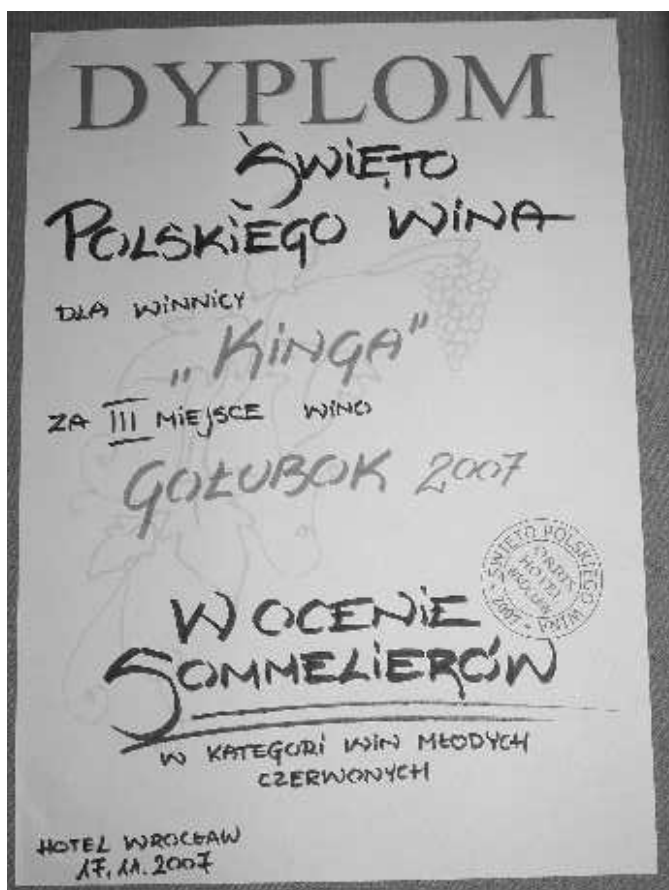 DYPLOM
ŚWIĘTO
POLSKIEGO WINA
DLA WINNICY
„KINGA”
ZA III MIEJSCE WINO
GOŁUBOK 2007
ŚWIĘTO POLSKIEGO WINA • 2007 •
HOTEL
WROCŁAW
W OCENIE
SOMMELIERÓW
W KATEGORI WIN MŁODYCH
CZERWONYCH
HOTEL WROCŁAW
17.11.2007